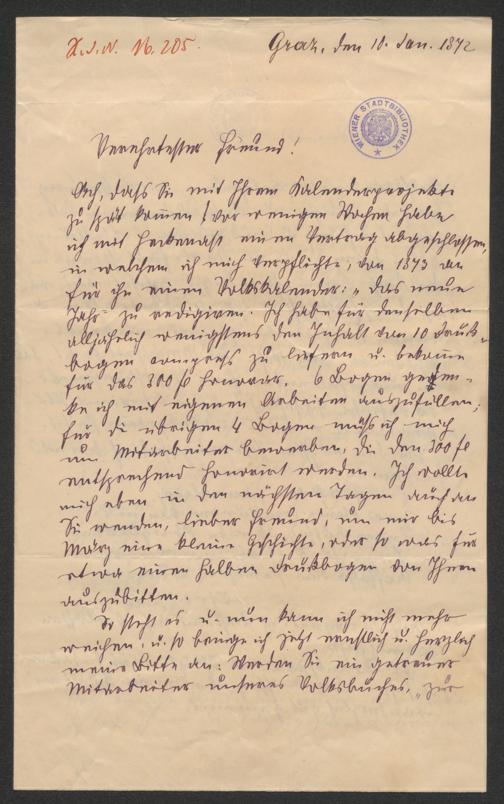 H.I.N. No. 205.
Graz, den 10. Jan. 1872
WIENER STADTBIBLIOTHEK
Verehrtester Freund!
Ach, dass Sie mit Ihrem Kalenderprojekte
zu spät kommen! vor wenigen Wochen habe
ich mit Heckenast einen Vertrag abgeschlossen,
in welchem ich mich verpflichte, von 1873 an
für ihn einen Volkskalender: „Das neue
Jahr" zu redigiren. Ich habe für denselben
alljährlich wenigstens den Inhalt von 10 Druck-
bogen compress zu liefern u. bekomme
für das 300 fl Honorar. 6 Bogen geden-
ke ich mit eigenen Arbeiten auszufüllen;
für die übrigen 4 Bogen muß ich mich
um Mitarbeiter bewerben, die den 300 fl
entsprechend honorirt werden. Ich wollte
mich eben in den nächsten Tagen auch an
Sie wenden, lieber Freund, um mir bis
März eine kleine Geschichte, oder so was für
etwa einen halben Druckbogen von Ihnen
auszubitten.
So steht es u. nun kann ich nicht mehr
weichen, u. so bringe ich jetzt ernstlich u. herzlich
meine Bitte an: Werden Sie ein getreuer
Mitarbeiter unseres Volksbuches. „zur